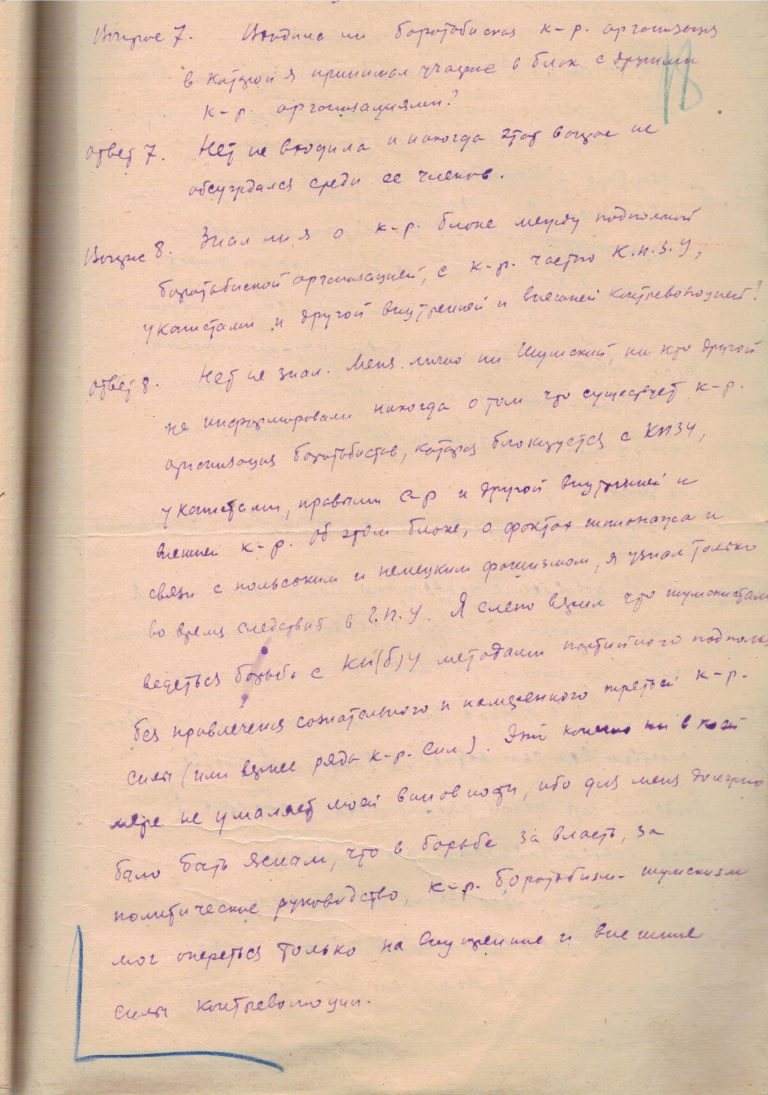 Вопрос 7. Входила ли боротьбиская к-р. организация
в которой я принимал участие в блок с другими
к-р. организациями?
18
ответ 7. Нет не входила и никогда этот вопрос не
обсуждался среди ее членов.
Вопрос 8. Знал ли я о к-р. блоке между подпольной
боротьбиской организацией, с к-р. частью К.П.З.У,
укапистами и другой внутренней и внешней контреволюцией?
ответ 8. Нет не знал. Меня лично ни Шумский, ни кто другой
не информировали никогда о том что существует к-р.
организация боротьбистов, которая блокируется с КПЗУ,
укапистами, правыми с-р и другой внутренней и
внешней к-р. Об этом блоке, о фактах шпионажа и
связи с польським и немецким фашизмом, я узнал только
во время следствия в Г.П.У. Я слепо верил что шумскистами
ведеться борьба с КП(б)У методами партийного подполья
без привлечения сознательного и намеренного третьей к-р.
силы (или вернее ряда к-р. сил). Это конечно ни в коей
мере не умаляет моей виновности, ибо для меня должно
было быть ясным, что в борьбе за власть, за
политическое руководство, к-р. боротьбизм-шумскизм
мог опереться только на внутренние и внешние
силы контреволюции.